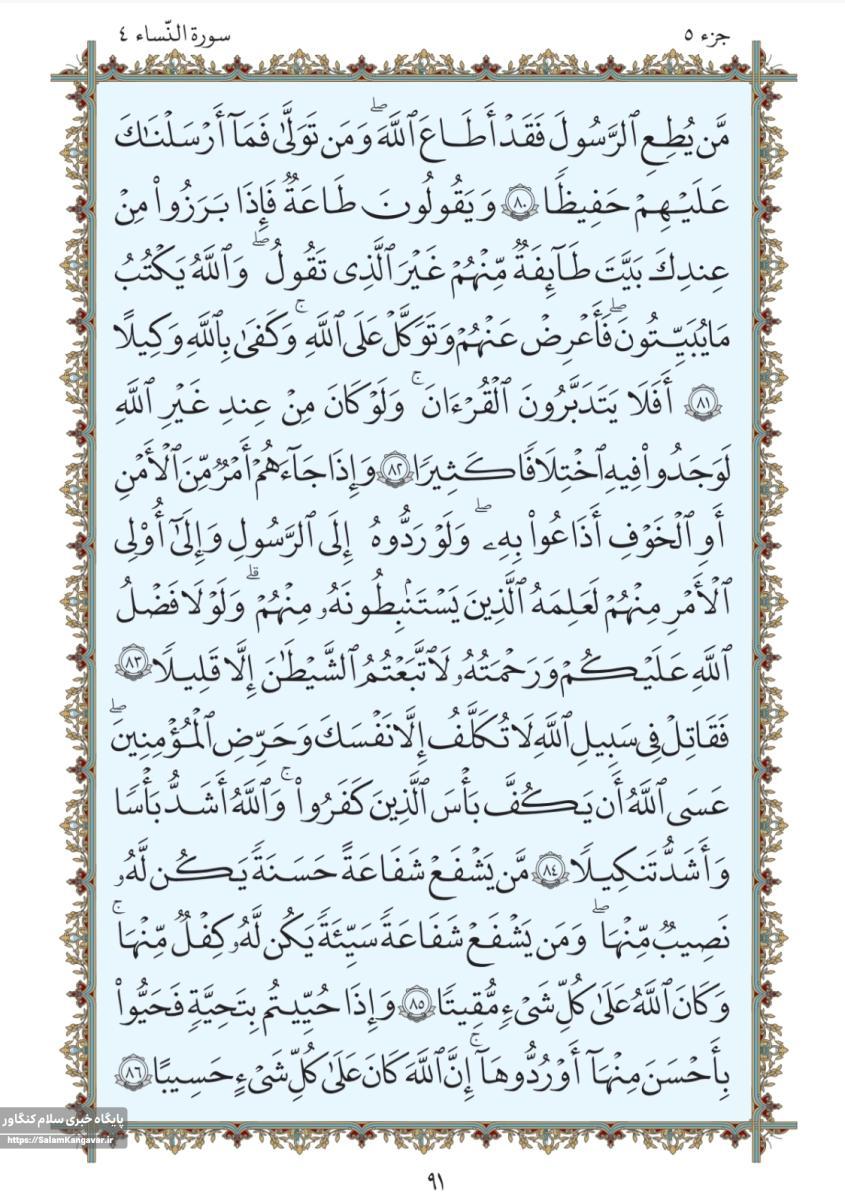 جزء ٥
سورة النّساء ٤
مَّن يُطِعِ ٱلرَّسُولَ فَقَدۡ أَطَاعَ ٱللَّهَۖ وَمَن تَوَلَّىٰ فَمَآ أَرۡسَلۡنَٰكَ
عَلَيۡهِمۡ حَفِيظٗا ٨٠ وَيَقُولُونَ طَاعَةٞ فَإِذَا بَرَزُواْ مِنۡ
عِندِكَ بَيَّتَ طَآئِفَةٞ مِّنۡهُمۡ غَيۡرَ ٱلَّذِي تَقُولُۖ وَٱللَّهُ يَكۡتُبُ
مَا يُبَيِّتُونَۖ فَأَعۡرِضۡ عَنۡهُمۡ وَتَوَكَّلۡ عَلَى ٱللَّهِۚ وَكَفَىٰ بِٱللَّهِ وَكِيلًا
٨١ أَفَلَا يَتَدَبَّرُونَ ٱلۡقُرۡءَانَۚ وَلَوۡ كَانَ مِنۡ عِندِ غَيۡرِ ٱللَّهِ
لَوَجَدُواْ فِيهِ ٱخۡتِلَٰفٗا كَثِيرٗا ٨٢ وَإِذَا جَآءَهُمۡ أَمۡرٞ مِّنَ ٱلۡأَمۡنِ
أَوِ ٱلۡخَوۡفِ أَذَاعُواْ بِهِۦۖ وَلَوۡ رَدُّوهُ إِلَى ٱلرَّسُولِ وَإِلَىٰٓ أُوْلِي
ٱلۡأَمۡرِ مِنۡهُمۡ لَعَلِمَهُ ٱلَّذِينَ يَسۡتَنۢبِطُونَهُۥ مِنۡهُمۡۗ وَلَوۡلَا فَضۡلُ
ٱللَّهِ عَلَيۡكُمۡ وَرَحۡمَتُهُۥ لَٱتَّبَعۡتُمُ ٱلشَّيۡطَٰنَ إِلَّا قَلِيلٗا ٨٣
فَقَٰتِلۡ فِي سَبِيلِ ٱللَّهِ لَا تُكَلَّفُ إِلَّا نَفۡسَكَۚ وَحَرِّضِ ٱلۡمُؤۡمِنِينَۖ
عَسَى ٱللَّهُ أَن يَكُفَّ بَأۡسَ ٱلَّذِينَ كَفَرُواْۚ وَٱللَّهُ أَشَدُّ بَأۡسٗا
وَأَشَدُّ تَنكِيلٗا ٨٤ مَّن يَشۡفَعۡ شَفَٰعَةً حَسَنَةٗ يَكُن لَّهُۥ
نَصِيبٞ مِّنۡهَاۖ وَمَن يَشۡفَعۡ شَفَٰعَةٗ سَيِّئَةٗ يَكُن لَّهُۥ كِفۡلٞ مِّنۡهَاۗ
وَكَانَ ٱللَّهُ عَلَىٰ كُلِّ شَيۡءٖ مُّقِيتٗا ٨٥ وَإِذَا حُيِّيتُم بِتَحِيَّةٖ فَحَيُّواْ
بِأَحۡسَنَ مِنۡهَآ أَوۡ رُدُّوهَآۚ إِنَّ ٱللَّهَ كَانَ عَلَىٰ كُلِّ شَيۡءٍ حَسِيبًا ٨٦
پایگاه خبری سلام کنگاور
https://SalamKangavar.ir
٩١